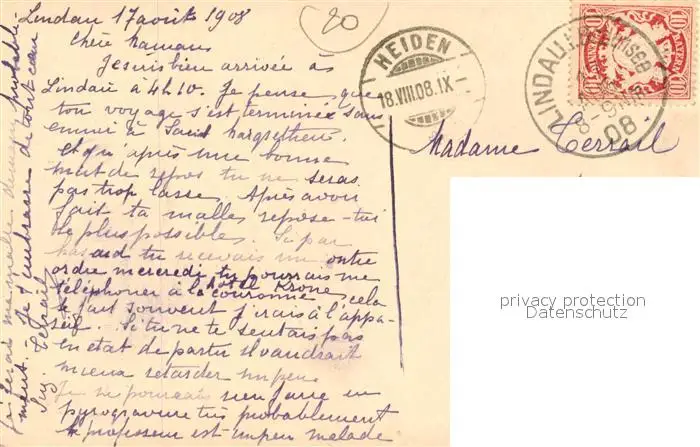 Lindau 17 août 1908
Chère maman
Je suis bien arrivée à
Lindau à 4h10. Je pense que
ton voyage s'est terminée sans
ennui à
et qu'après une bonne
nuit de repos tu ne seras
pas trop lasse. Après avoir
fait ta malles repose-toi
le plus possibles. Si par
hasard tu recevais un contre
ordre mercredi tu pourrais me
téléphoner à l'hotel Krone
couronne, cela
se fait souvent j'irais à l'appa-
reil. Si tu ne te sentais pas
en état de partir il vaudrait
mieux retarder un peu
Je ne pourrais rien faire en
pyrogravure très probablement
le professeur est un peu malade
je ferais ma malle demain probable-
ment. Je t'embrasse de tout cœur
20
HEIDEN
18.VIII.08.IX-
LINDAU
08
10
10
BAYERN
10
10
Madame Terrail
privacy protection
Datenschutz